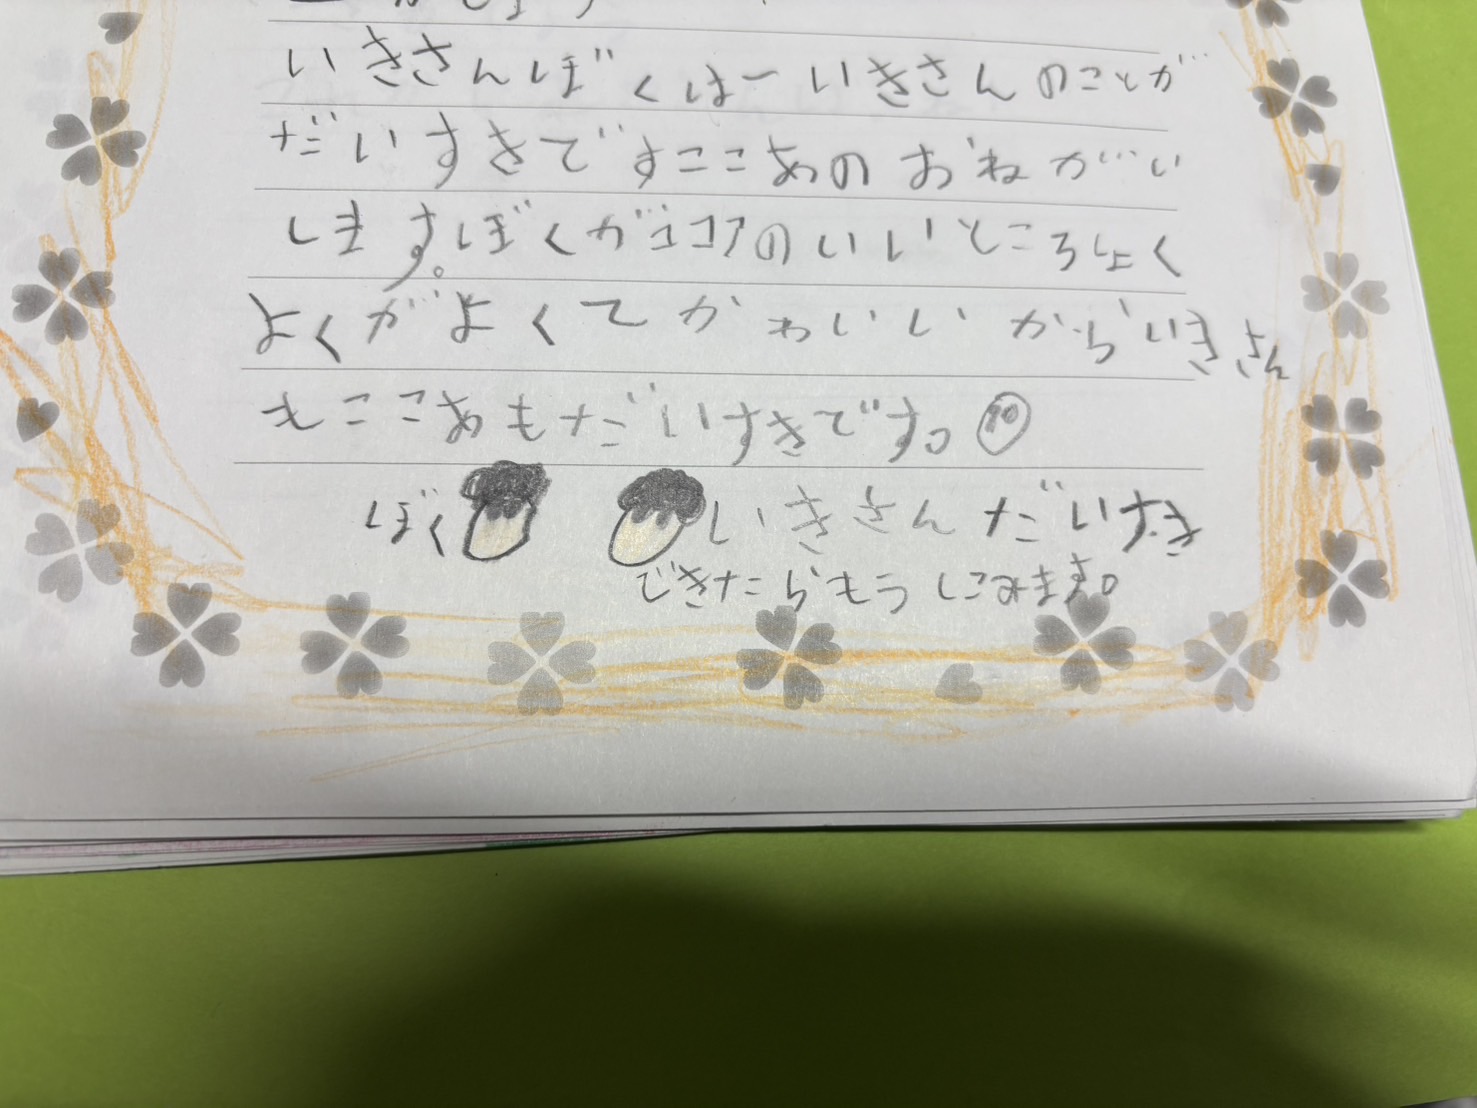 いきさんぼくはーいきさんのことが
だいすきですここあのおねがい
します。ぼくがココアのいいところしょく
よくがよくてかわいいからいきさん
もここあもだいすきです。
ぼく いきさんだいすき
できたらもうしこみます。